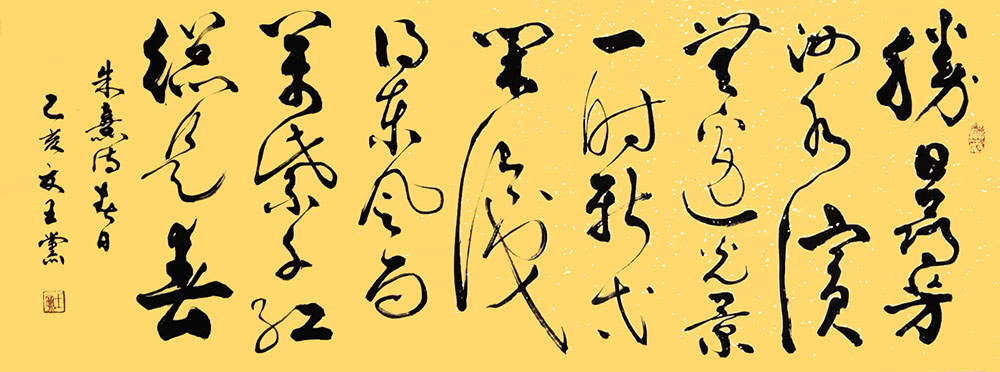 勝日尋芳
泗水濱
無邊光景
一時新等
閒識
得東風面
萬紫千紅
總是春
朱熹詩春日
己亥王黨